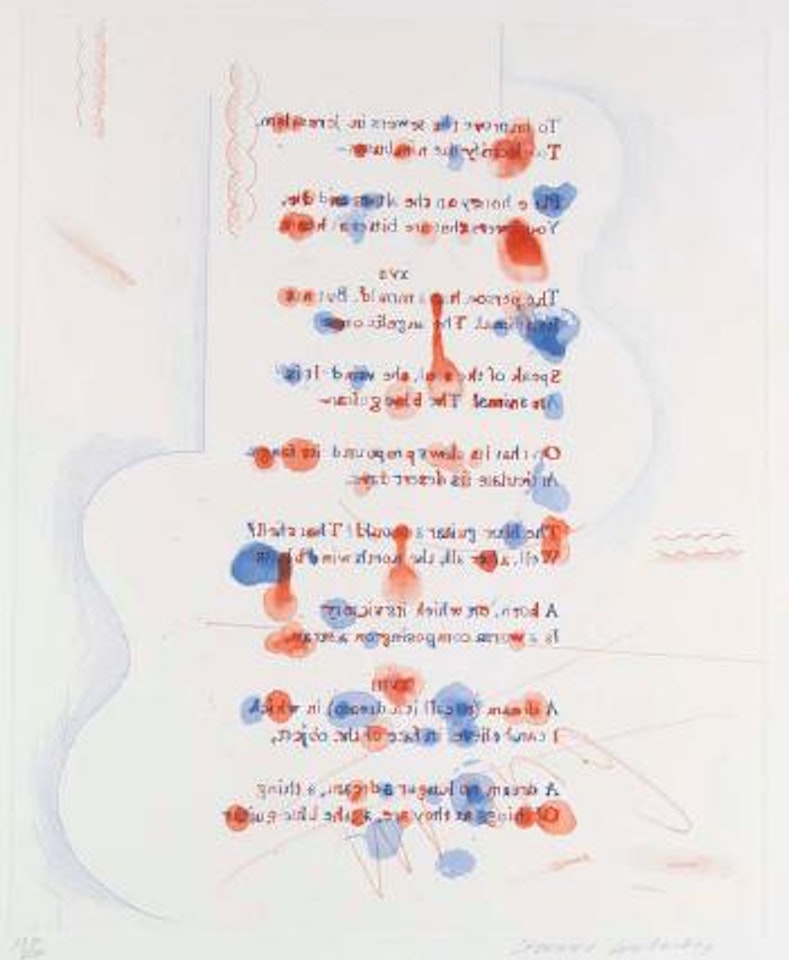 To improve the sewers in Jerusalem,
To electrify the nimbuses—
Place honey on the altars and die,
You lovers that are bitter at heart.
XVII
The person has a mould. But not
Its animal. The angelic ones
Speak of the soul, the mind. It is
An animal. The blue guitar—
On that its claws propound, its fangs
Articulate its desert days.
The blue guitar a mould? That shell?
Well, after all, the north wind blows
A horn, on which its victory
Is a worm composing on a straw.
XVIII
A dream (to call it a dream) in which
I can believe, in face of the object,
A dream no longer a dream, a thing
Of things as they are, as the blue guitar